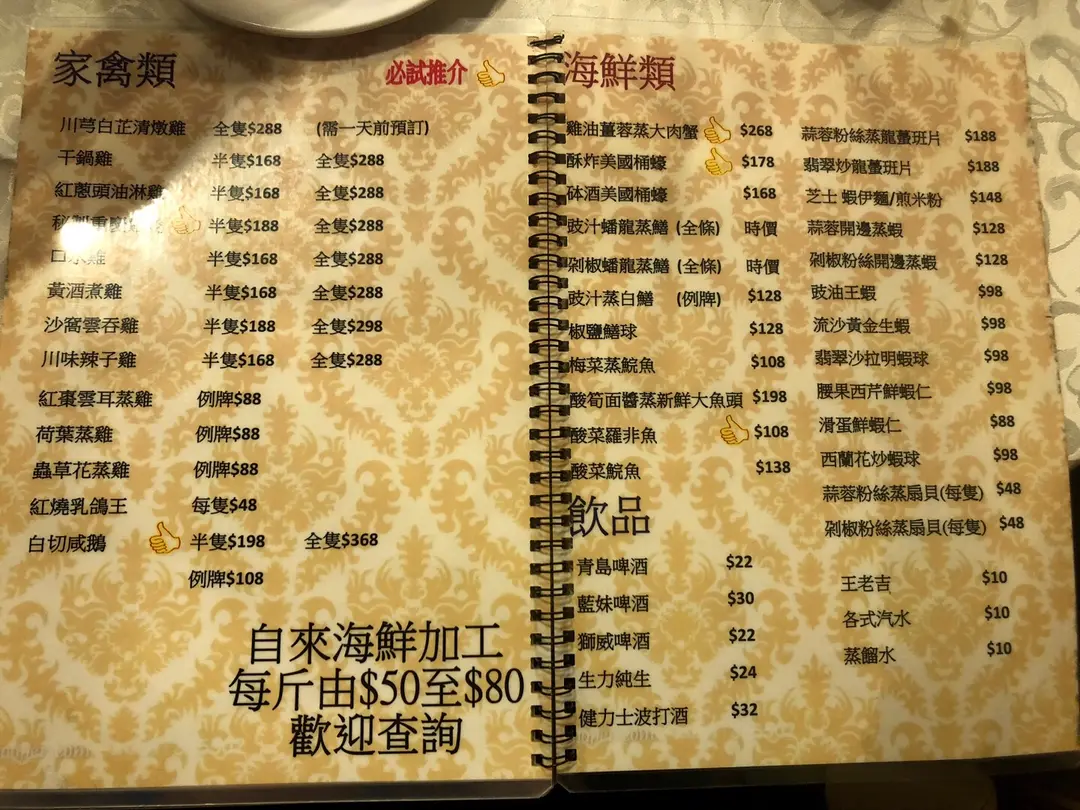 家禽類
必試推介
川芎白芷清燉雞 全隻$288 (需一天前預訂)
干鍋雞 半隻$168 全隻$288
紅蔥頭油淋雞 半隻$168 全隻$288
半隻$188 全隻$288
口水雞 半隻$168 全隻$288
黃酒煮雞 半隻$168 全隻$288
沙窩雲吞雞 半隻$188 全隻$298
川味辣子雞 半隻$168 全隻$288
紅棗雲耳蒸雞 例牌$88
荷葉蒸雞 例牌$88
蟲草花蒸雞 例牌$88
紅燒乳鴿王 每隻$48
白切咸鵝 半隻$198 全隻$368
例牌$108
自來海鮮加工
每斤由$50至$80
歡迎查詢
海鮮類
雞油薑蓉蒸大肉蟹 $268
酥炸美國桶蠔 $178
砵酒美國桶蠔 $168
豉汁蟠龍蒸鱔 (全條) 時價
剁椒蟠龍蒸鱔 (全條) 時價
豉汁蒸白鱔 (例牌) $128
椒鹽鱔球 $128
梅菜蒸鯇魚 $108
酸筍面醬蒸新鮮大魚頭 $198
酸菜羅非魚 $108
酸菜鯇魚 $138
蒜蓉粉絲蒸龍躉班片 $188
翡翠炒龍躉班片 $188
芝士 蝦伊麵/煎米粉 $148
蒜蓉開邊蒸蝦 $128
剁椒粉絲開邊蒸蝦 $128
豉油王蝦 $98
流沙黃金生蝦 $98
翡翠沙拉明蝦球 $98
腰果西芹鮮蝦仁 $98
滑蛋鮮蝦仁 $88
西蘭花炒蝦球 $98
蒜蓉粉絲蒸扇貝(每隻) $48
剁椒粉絲蒸扇貝(每隻) $48
飲品
青島啤酒 $22
藍妹啤酒 $30
獅威啤酒 $22
生力純生 $24
健力士波打酒 $32
王老吉 $10
各式汽水 $10
蒸餾水 $10